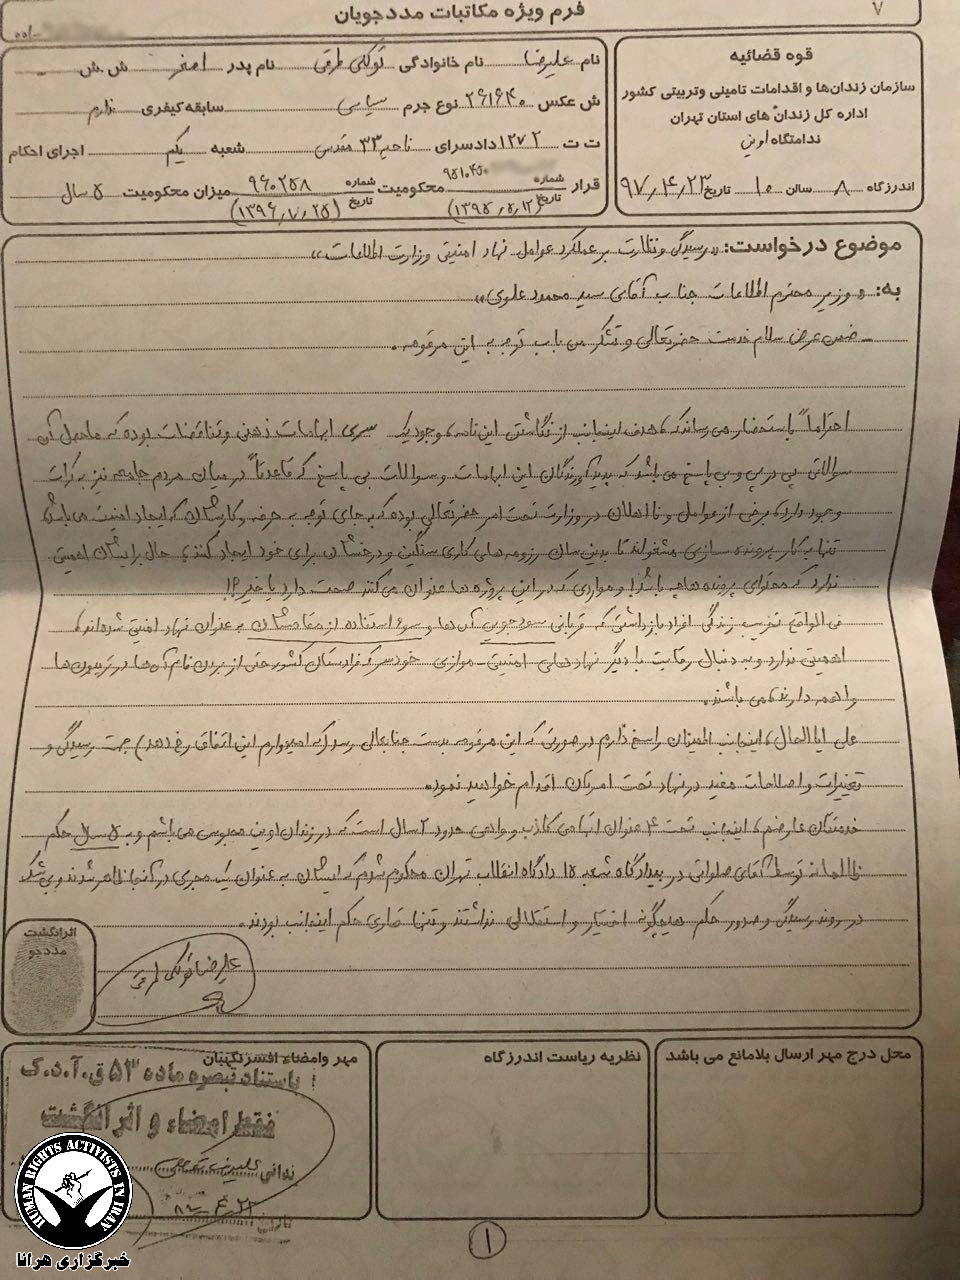 فرم ویژه مکاتبات مددجویان
۷
قوه قضائیه
سازمان زندان‌ها و اقدامات تامینی وتربیتی کشور
اداره کل زندان های استان تهران
ندامتگاه اوین
اندرزگاه ۸ سالن ۱۰ تاریخ ۹۷/۴/۲۳
نام علیرضا نام خانوادگی توکلی طرقی نام پدر اصغر ش.ش
ش عکس ۲۶۱۶۴۰ نوع جرم سیاسی سابقه کیفری ندارم
ت ت ۱۲۷۲ دادسرای ناحیه ۳۳ مقدس شعبه یکم اجرای احکام
قرار شماره تاریخ (۱۳۹۵/۵/۱۲) محکومیت شماره ۹۶۰۲۵۸ تاریخ (۱۳۹۶/۷/۲۵) میزان محکومیت ۵ سال
موضوع درخواست: «رسیدگی و نظارت بر عملکرد عوامل نهاد امنیتی وزارت اطلاعات»
به: «وزیر محترم اطلاعات جناب آقای سید محمود علوی»
ـ ضمن عرض سلام خدمت حضرتعالی و تشکر من باب توجه به این مرقومه.
احتراماً باستحضار می‌رساند که، هدف اینجانب از نگاشتن این نامه، وجود یک سری ابهامات ذهنی و تناقضات بوده که ماحصل آن
سوالاتی پی در پی و بی پاسخ می باشد که پدیدآورندگان این ابهامات و سوالات بی پاسخ که قاعدتاً در میان مردم جامعه نیز به کرات
وجود دارد، برخی از عوامل و نااهلان در وزارت تحت امر حضرتعالی بوده که به جای توجه به حرفه و کارشان که ایجاد امنیت می باشد،
تنها به کار پرونده سازی مشغولند تا بدین سان رزومه های کاری سنگین و درخشانی برای خود ایجاد کنند، حال برایشان اهمیتی
ندارد که محتوای پرونده ها چه باشد! و مواردی که در این پروژه ها عنوان می‌کنند صحت دارد یا خیر؟!
فی الواقع تخریب زندگی افراد بازداشتی که قربانی سودجویی آن‌ها و سوء استفاده از مقامشان به عنوان نهاد امنیتی شده‌اند،
اهمیتی ندارد و به دنبال رقابت با دیگر نهادهای امنیتی ـ موازی خودسر که زیردستان کشور حتی از بردن نام آن‌ها در تریبون ها
واهمه دارند، می باشند.
علی ایا الحال، اینجانب اطمینان راسخ دارم در صورتی که این مرقومه بدست جنابعالی رسد (که امیدوارم این اتفاق رخ دهد) جهت رسیدگی و
تغییرات و اصلاحات مفید در نهاد تحت امرتان اقدام خواهید نمود.
خدمتتان عارضم، اینجانب تحت ۴ عنوان اتهامی کاذب و واهی حدود ۲ سال است که در زندان اوین محبوس می باشم و به ۵ سال حکم
ظالمانه توسط آقای صلواتی در بیدادگاه شعبه ۱۵ دادگاه انقلاب تهران محکوم شدم که ایشان به عنوان یک مجری در آنجا ظاهر شدند و بی شک
در روند رسیدگی و صدور حکم هیچگونه اختیار و استقلالی نداشتند و تنها قاری حکم اینجانب بودند.
اثرانگشت
مددجو
علیرضا توکلی طرقی
محل درج مهر ارسال بلامانع می باشد
نظریه ریاست اندرزگاه
مهر وامضاء افسرنگهبان
باستناد تبصره ماده ۵۳ ق.آ.د.ک
فقط امضاء و اثر انگشت
زندانی علیرضا توکلی
تاریخ
۱
HUMAN RIGHTS ACTIVISTS IN IRAN
خبرگزاری هرانا